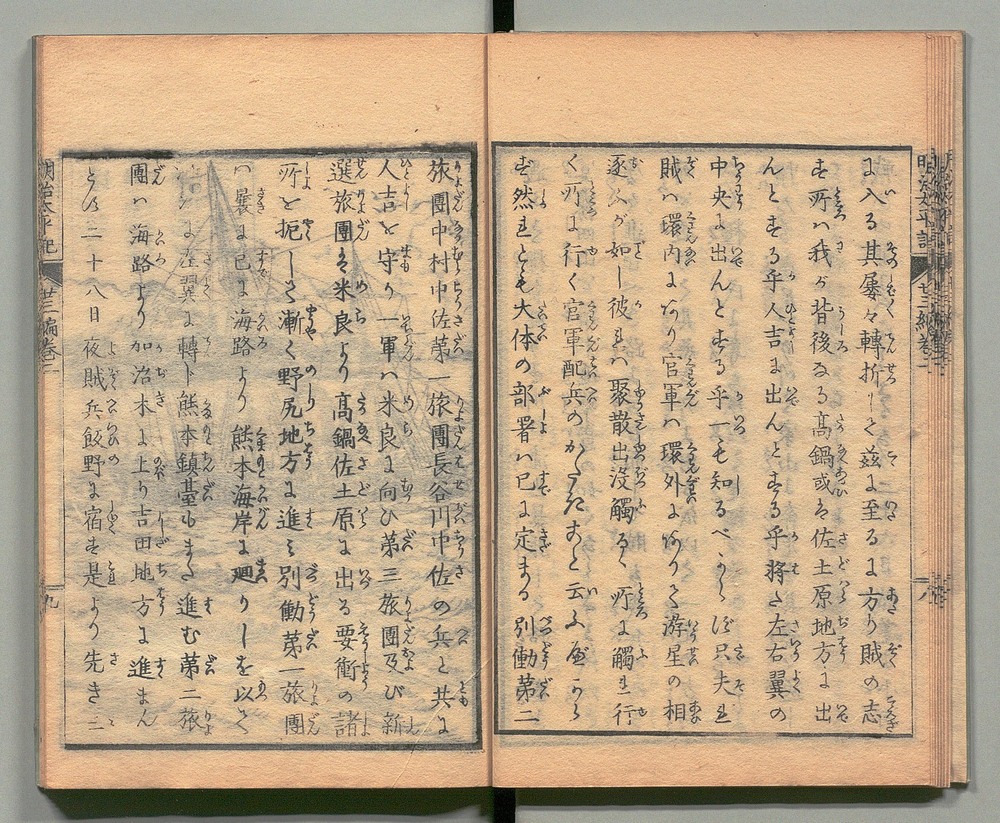 明治太平記 廿三編卷二 八
に入る其屡々轉折して茲に至るに方り賊の志
す所ハ我が背後なる高鍋或ハ佐土原地方に出
んとする乎人吉に出んとする乎將た左右翼の
中央に出んとする乎一も知るべからず只夫れ
賊ハ環内にあり官軍ハ環外にありて游星の相
逐ふが如し彼れハ聚散出没觸るゝ所に觸れ行
く所に行く官軍配兵のかたきこと云ふ可から
ず然れども大体の部署ハ已に定まる別働第二
旅團中村中佐第一旅團長谷川中佐の兵と共に
人吉を守り一軍ハ米良に向ひ第三旅團及び新
選旅團ハ米良より高鍋佐土原に出る要衝の諸
所を扼して漸く野尻地方に進み別働第一旅團
ハ曩に已に海路より熊本海岸に廻りしを以て
に左翼に轉し熊本鎮臺もまた進む第二旅
團ハ海路より加治木に上り吉田地方に進まん
とす二十八日夜賊兵飯野に宿す是より先き三
明治太平記 廿三編卷二 九